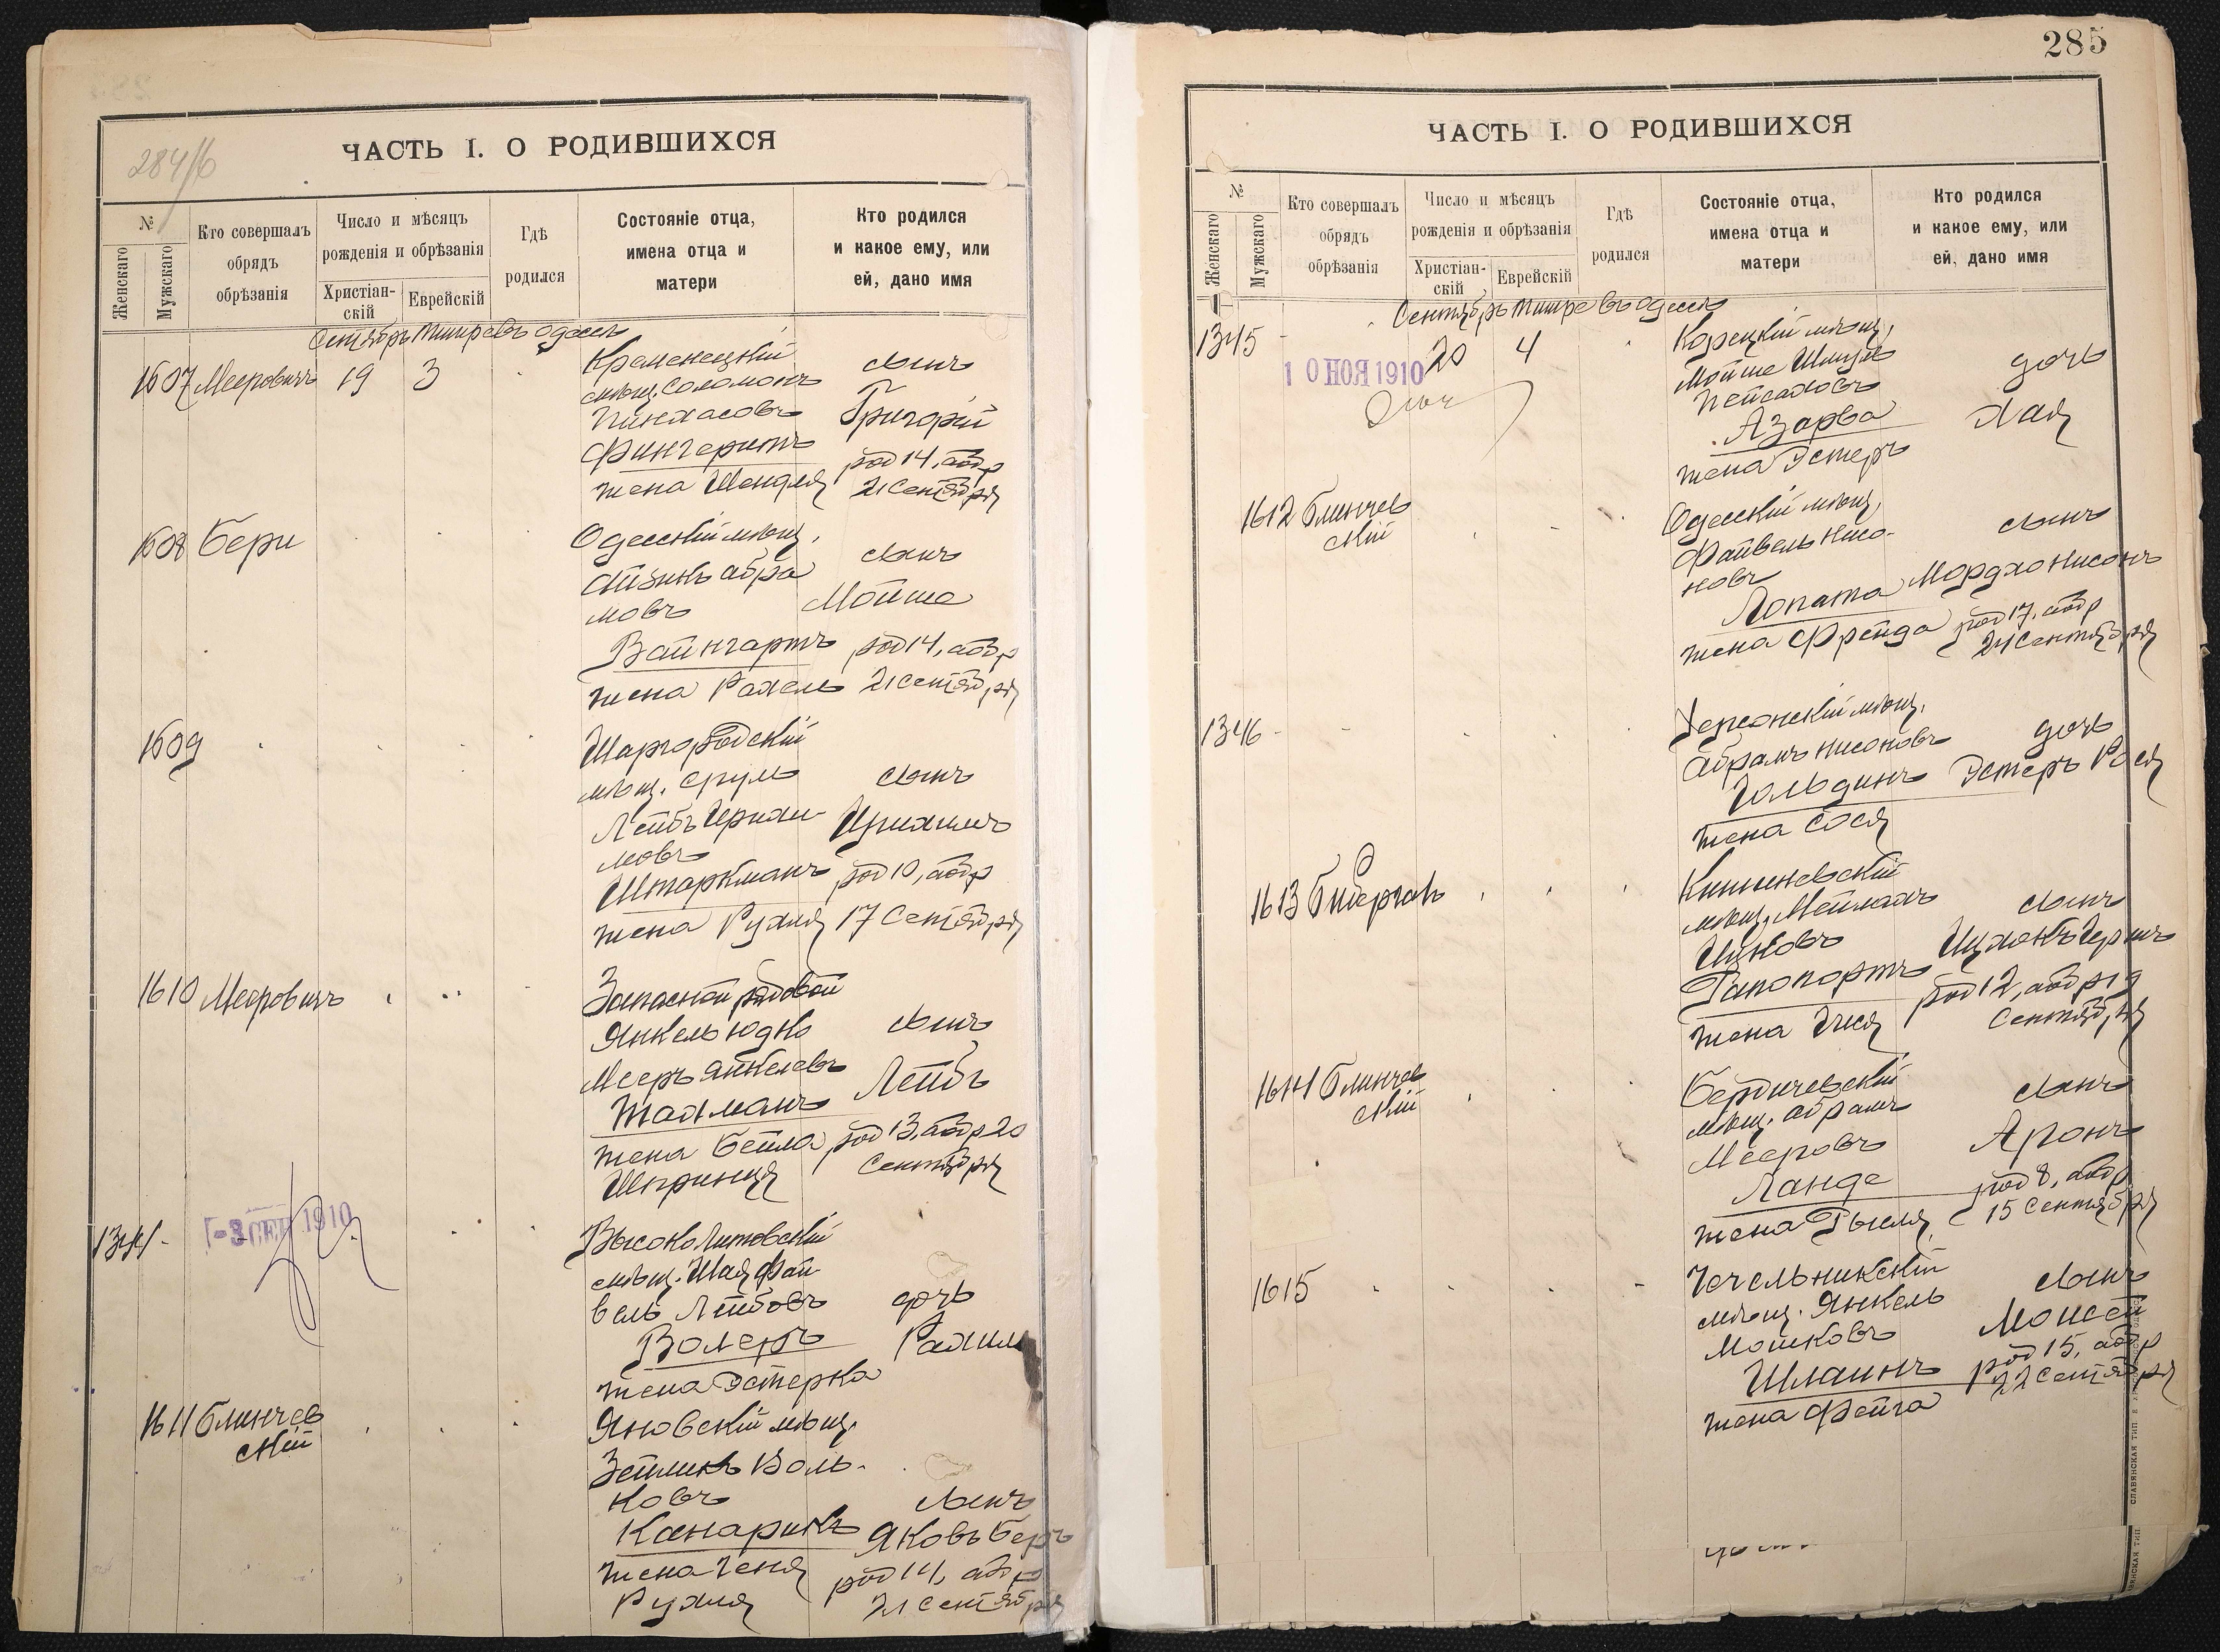 284/б
ЧАСТЬ I. О РОДИВШИХСЯ
№
Женскаго
Мужскаго
Кто совершалъ
обрядъ
обрѣзанія
Число и мѣсяцъ
рожденія и обрѣзанія
Христіан-
скій
Еврейскій
Гдѣ
родился
Состояніе отца,
имена отца и
матери
Кто родился
и какое ему, или
ей, дано имя
Сентябрь Тишре въ Одессѣ
1607 Мееровичъ 19 3
Кременецкій
мѣщ. Соломонъ
Пинхасовъ
Фингеритъ
жена Шендля
сынъ
Григорій
род 14, обр
21 Сентября
1608 Бери
Одесскій мѣщ.
Айзикъ Абра
мовъ
Вайнгартъ
жена Рахель
сынъ
Мойше
род 14, обр
21 Сентября
1609
Шаргородскій
мѣщ. Сруль
Лейбъ
мовъ
Штаркманъ
жена Рухля
сынъ
род 10, обр
17 Сентября
1610 Мееровичъ
Запасной рядовой
Янкель Юдко
Мееръ Янкелевъ
Жахманъ
жена Бейла
Шпринця
сынъ
Лейбъ
род 13, обр 20
Сентября
1344
-3 СЕН 1910
ВысокоЛитовскій
мѣщ. Шая Фай
вель Лейбовъ
Волеръ
жена Эстерка
дочь
Рахиль
1611 Блинчев
скій
Яновскій мѣщ.
Зейликъ Воль-
ковъ
Канарикъ
жена Геня
Рухля
сынъ
Яковъ Беръ
род 14, обр
21 Сентября
285
ЧАСТЬ I. О РОДИВШИХСЯ
№
Женскаго
Мужскаго
Кто совершалъ
обрядъ
обрѣзанія
Число и мѣсяцъ
рожденія и обрѣзанія
Христіан-
скій
Еврейскій
Гдѣ
родился
Состояніе отца,
имена отца и
матери
Кто родился
и какое ему, или
ей, дано имя
Сентябрь Тишре въ Одессѣ
1345 20 4
10 НОЯ 1910
Корецкій мѣщ.
Мойше Шмуль
Пейсаховъ
Азарва
жена Эстеръ
дочь
Хая
1612 Блинчев
скій
Одесскій мѣщ.
Файвель Нисо-
новъ
Лопата
жена Фрейда
сынъ
Мордхо Нисонъ
род 17, обр
24 Сентября
1346
Херсонскій мѣщ.
Абрамъ Нисоновъ
Гольдинъ
жена Сося
дочь
Эстеръ Рося
1613
Кишиневскій
мѣщ. Мейлахъ
Ицковъ
Рапопортъ
жена
сынъ
Ицхокъ Гершъ
род 12, обр 19
Сентября
1614 Блинчев
скій
Бердичевскій
мѣщ. Абрамъ
Мееровъ
Ланде
жена
сынъ
Аронъ
род 8, обр
15 Сентября
1615
Чечельникскій
мѣщ. Янкель
Мошковъ
Шлаинъ
жена Фейга
сынъ
Моисей
род 15, обр
22 Сентября
СЛАВЯНСКАЯ ТИП